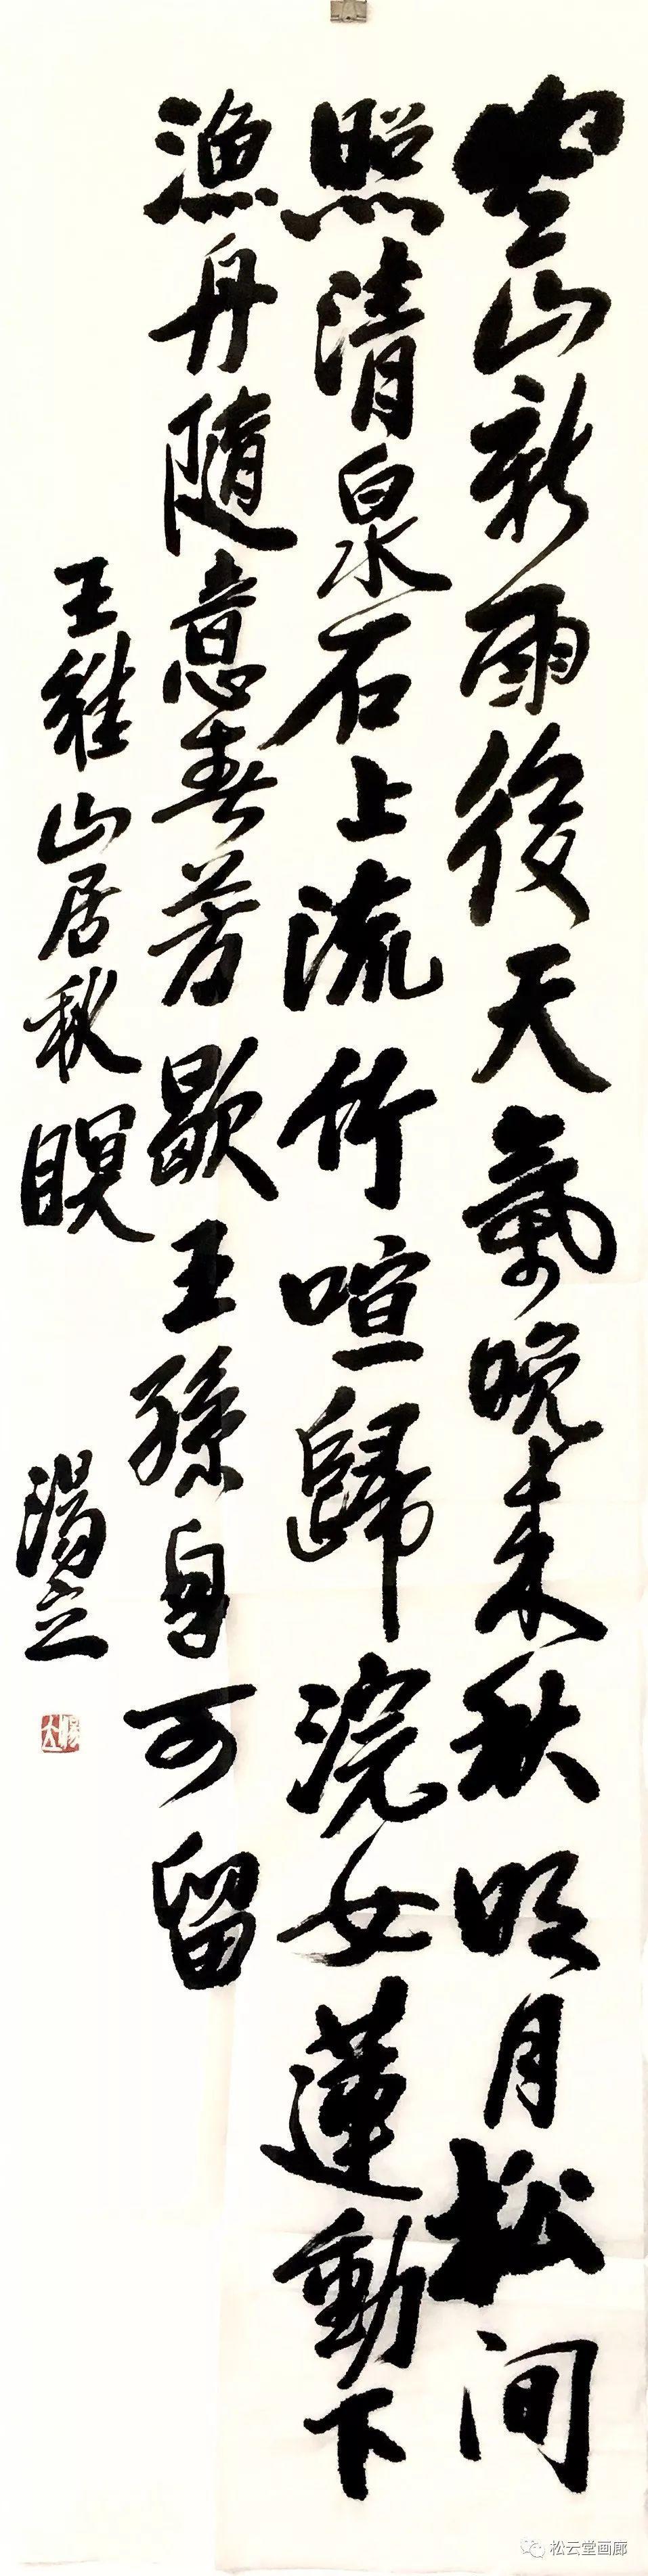 空山新雨後天氣晚来秋明月松间
照清泉石上流竹喧歸浣女蓮動下
漁舟随意春芳歇王孫自可留
王維山居秋瞑 湯立
松云堂画廊